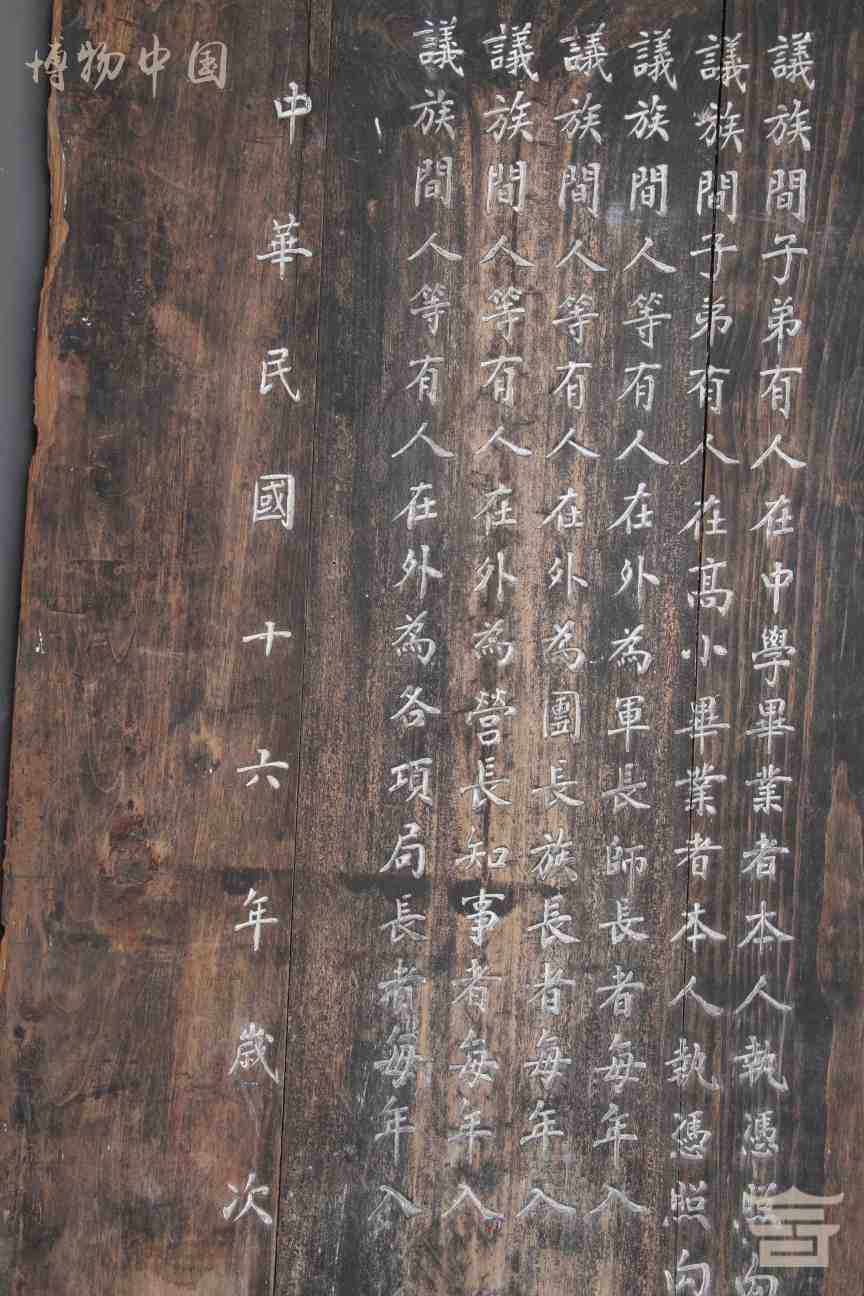 議族間子弟有人在中學畢業者本人執憑照向
議族間子弟有人在高小畢業者本人執憑照向
議族間人等有人在外為軍長師長者每年入
議族間人等有人在外為團長族長者每年入
議族間人等有人在外為營長知事者每年入
議族間人等有人在外為各項局長者每年入
中華民國十六年歲次
博物中国